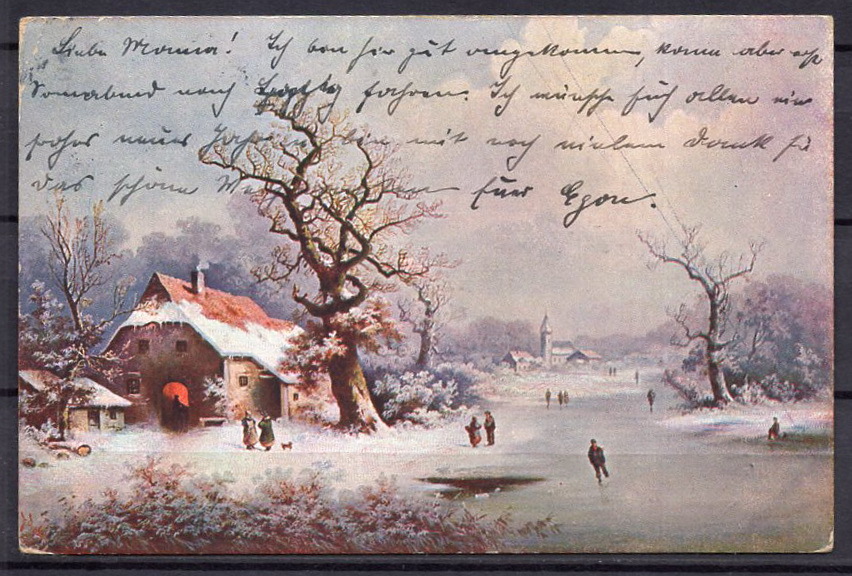 Liebe Mama! Ich bin hir gut angekommen, kann aber erst
Sonnabend nach Leipzig fahren. Ich wünsche Euch allen ein
frohes neues Jahr und bin mit noch vielem Dank für
das schöne Euer Egon.